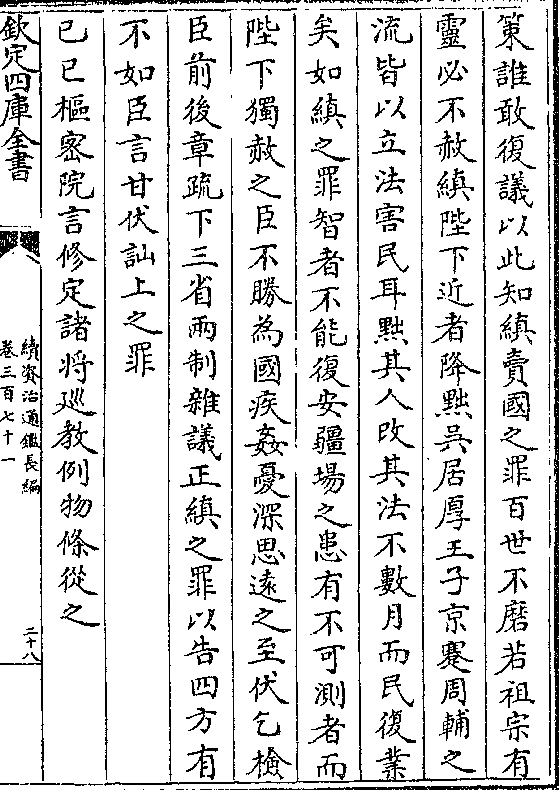 策誰敢復議以此知縝賣國之罪百世不磨若祖宗有
靈必不赦縝陛下近者降黜吳居厚王子京蹇周輔之
流皆以立法害民耳黜其人改其法不數月而民復業
矣如縝之罪智者不能復安疆場之患有不可測者而
陛下獨赦之臣不勝為國疾姦憂深思遠之至伏乞檢
臣前後章疏下三省兩制雜議正縝之罪以告四方有
不如臣言甘伏訕上之罪
己巳樞密院言修定諸將巡教例物條從之
欽定四庫全書
續資治通鑑長編
卷三百七十一
二十八